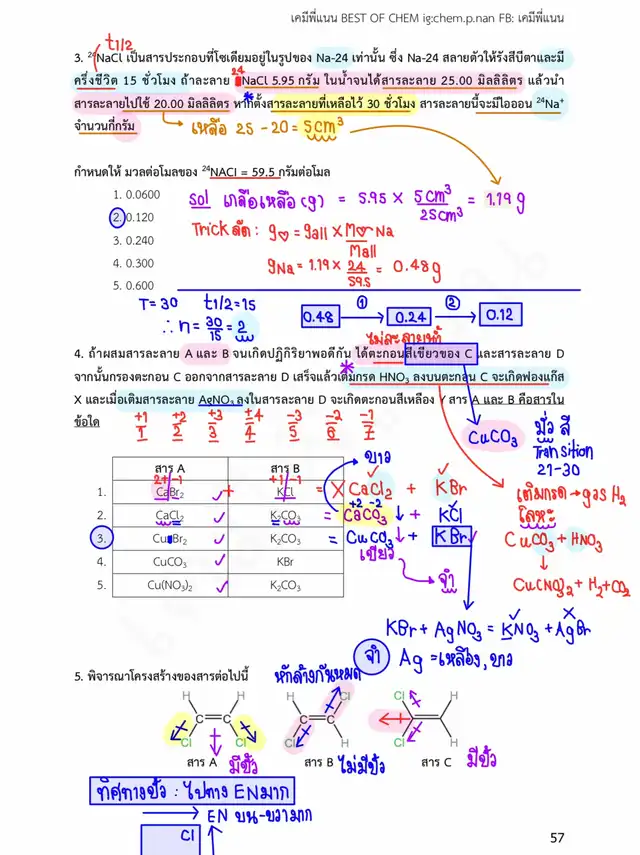 เคมีพี่แนน BEST OF CHEM ig:chem.p.nan FB: เคมีพี่แนน
t1/2
3. ²⁴NaCl เป็นสารประกอบที่โซเดียมอยู่ในรูปของ Na-24 เท่านั้น ซึ่ง Na-24 สลายตัวให้รังสีบีตาและมี
ครึ่งชีวิต 15 ชั่วโมง ถ้าละลาย ²⁴NaCl 5.95 กรัม ในน้ำจนได้สารละลาย 25.00 มิลลิลิตร แล้วนำ
สารละลายไปใช้ 20.00 มิลลิลิตร หากตั้งสารละลายที่เหลือไว้ 30 ชั่วโมง สารละลายนี้จะมีไอออน ²⁴Na⁺
จำนวนกี่กรัม
เหลือ 25 - 20 = 5 cm³
กำหนดให้ มวลต่อโมลของ ²⁴NACl = 59.5 กรัมต่อโมล
1. 0.0600
sol เกลือเหลือ (g) = 5.95 × 5 cm³ / 25 cm³ = 1.19 g
2. 0.120
Trick ลัด : g♡ = gall × M♡ Na / Mall
3. 0.240
4. 0.300
gNa = 1.19 × 24 / 59.5 = 0.48 g
5. 0.600
T = 30 t1/2 = 15
∴ n = 30/15 = 2
0.48 ① → 0.24 ② → 0.12
ไม่ละลายน้ำ
4. ถ้าผสมสารละลาย A และ B จนเกิดปฏิกิริยาพอดีกัน ได้ตะกอนสีเขียวของ C และสารละลาย D
จากนั้นกรองตะกอน C ออกจากสารละลาย D เสร็จแล้วเติมกรด HNO₃ ลงบนตะกอน C จะเกิดฟองแก๊ส
X และเมื่อเติมสารละลาย AgNO₃ ลงในสารละลาย D จะเกิดตะกอนสีเหลือง Y สาร A และ B คือสารใน
ข้อใด
+1 +2 +3 ±4 -3 -2 -1
1 2 3 4 5 6 7
CuCO₃
มั่ว สี
Transition
21-30
สาร A สาร B
ขาว
2+ -1 +1 -1
1. CaBr₂ + KCl = × CaCl₂ + KBr
+2 -2
2. CaCl₂ K₂CO₃ = CaCO₃ ↓ + KCl
3. CuBr₂ K₂CO₃ = CuCO₃ ↓ + KBr
เขียว
4. CuCO₃ KBr
จำ
5. Cu(NO₃)₂ K₂CO₃
เติมกรด → gas H₂
โลหะ
CuCO₃ + HNO₃
Cu(NO₃)₂ + H₂ + CO₂
KBr + AgNO₃ = KNO₃ + AgBr
จำ Ag = เหลือง, ขาว
5. พิจารณาโครงสร้างของสารต่อไปนี้
หักล้างกันหมด
H H H Cl Cl H
C C
Cl Cl Cl H Cl H
สาร A มีขั้ว สาร B ไม่มีขั้ว สาร C มีขั้ว
ทิศทางขั้ว : ไปทาง EN มาก
EN บน-ขวามาก
Cl
57